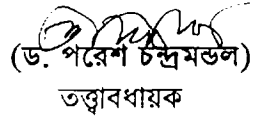 (ড. পরেশ চন্দ্রমন্ডল)
তত্ত্বাবধায়ক